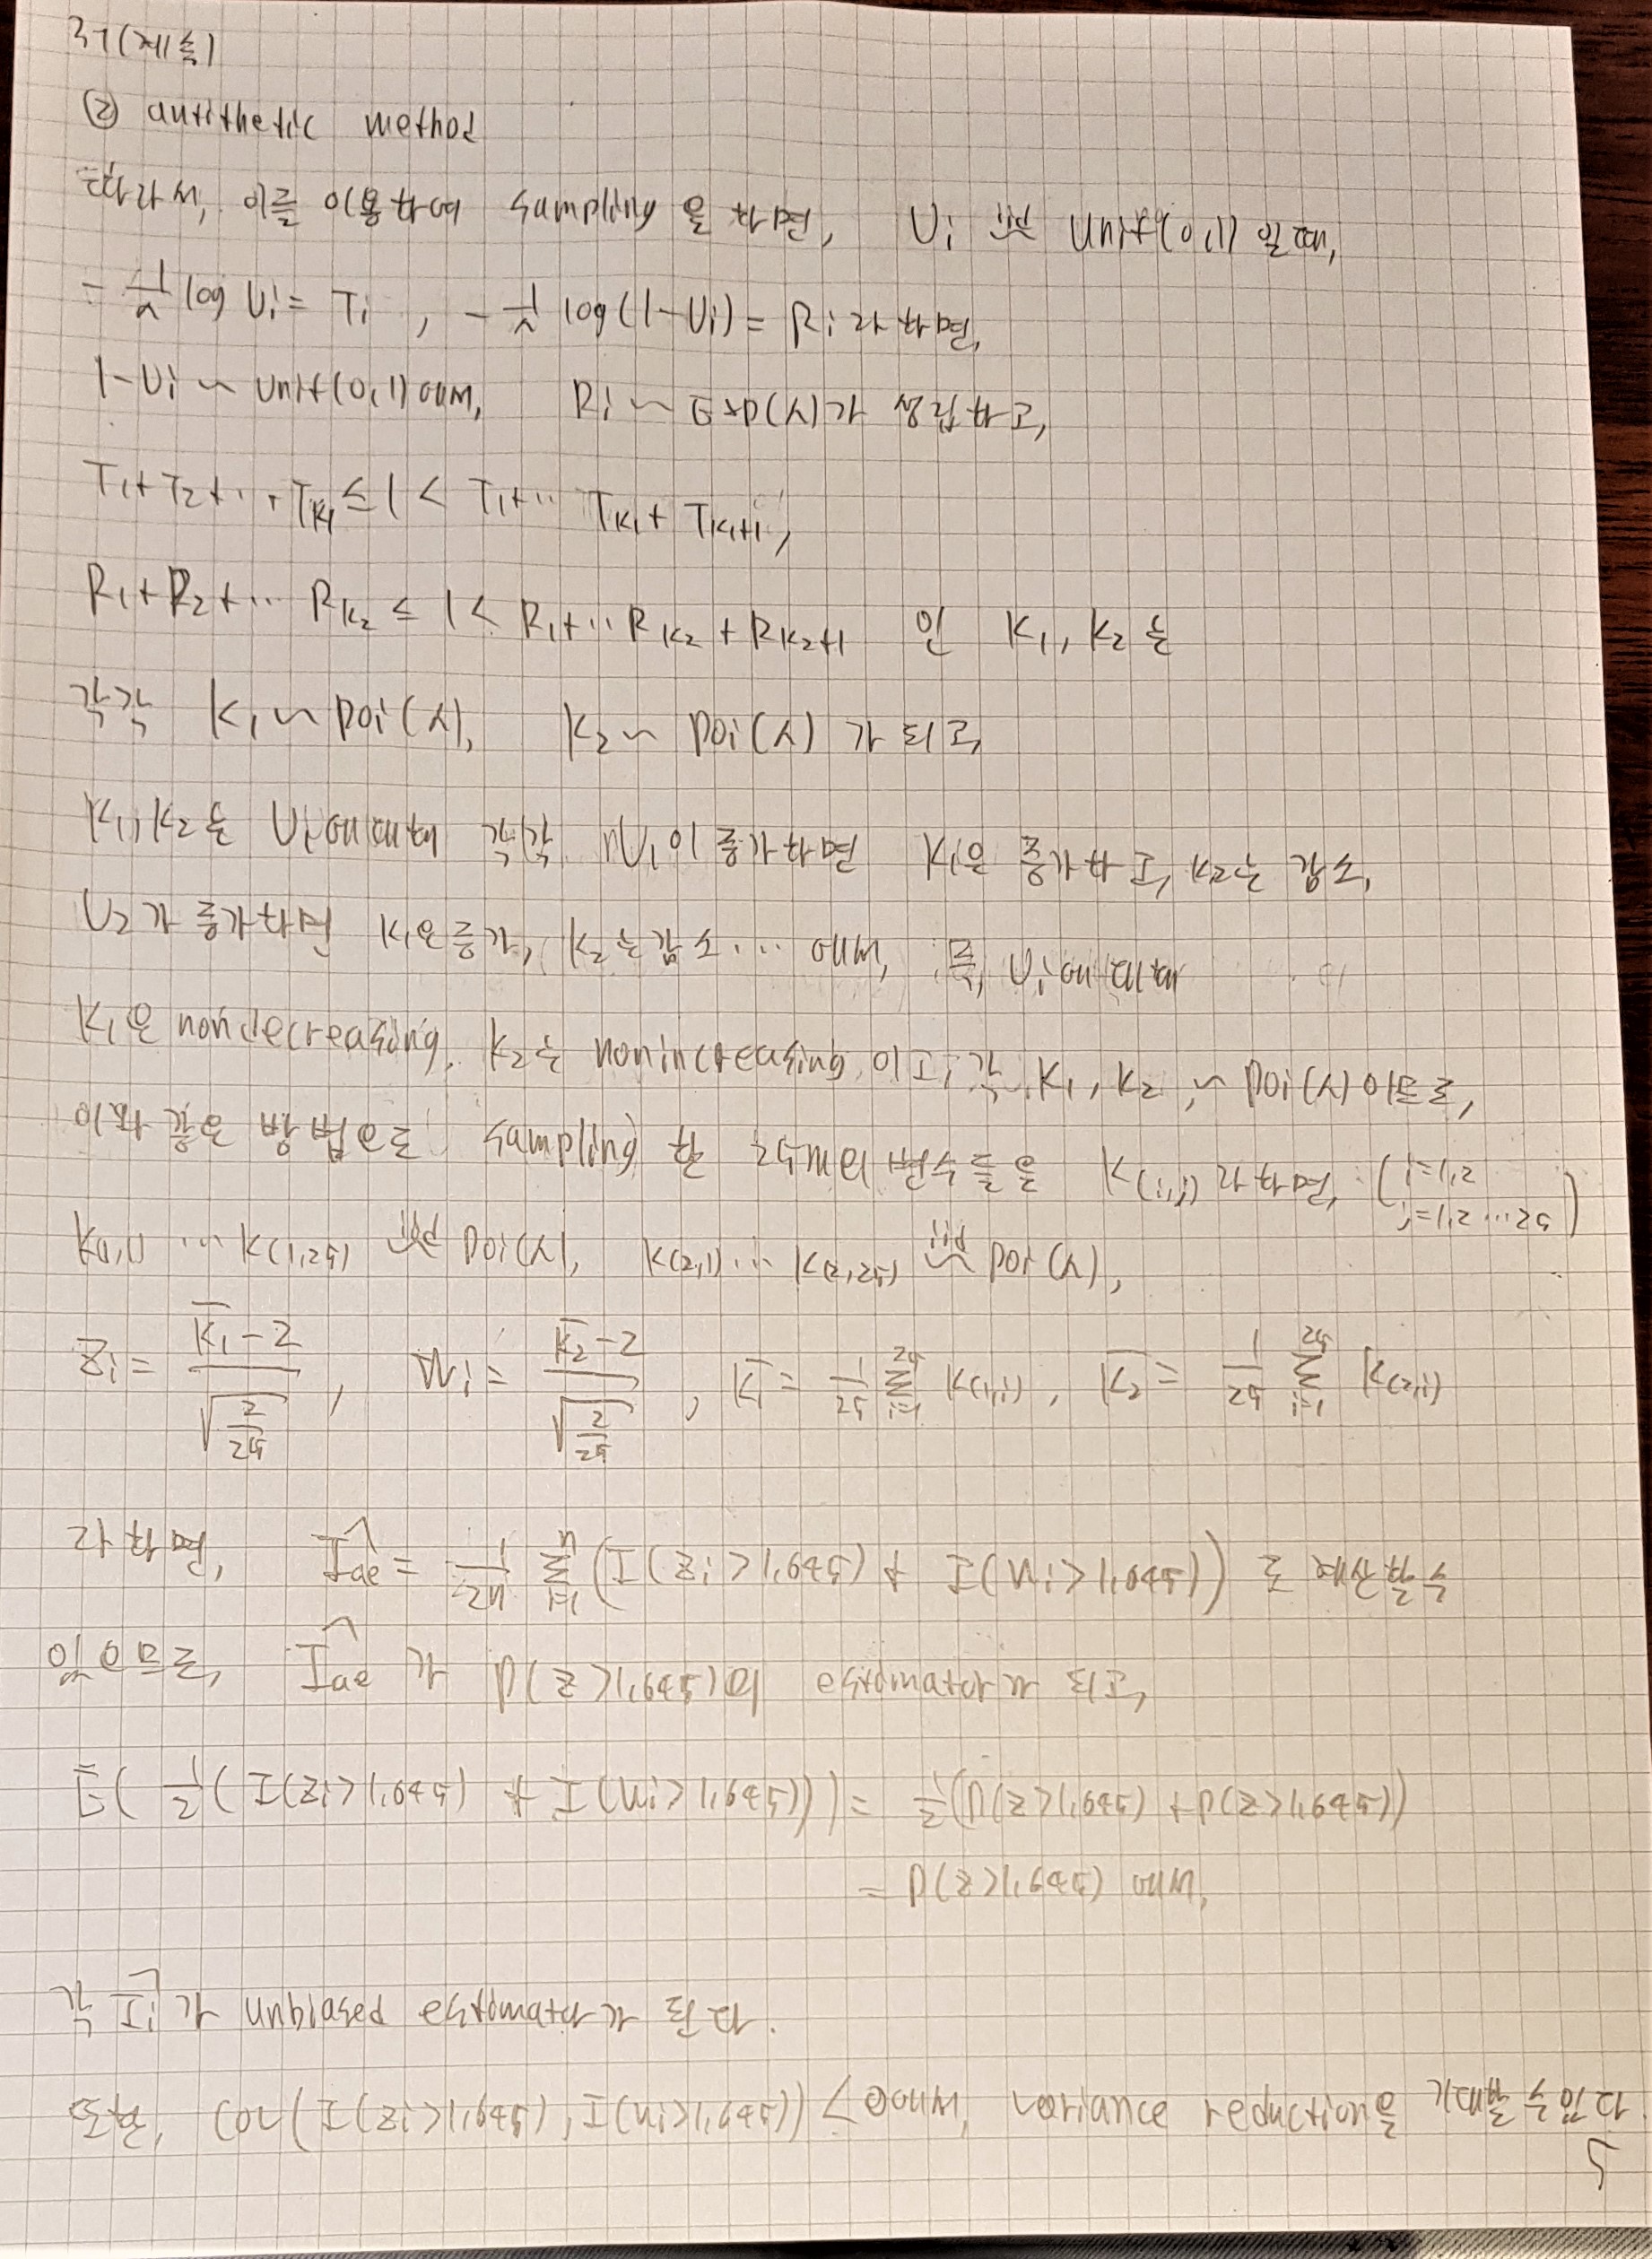 3번(계속)
② antithetic method
따라서, 이를 이용하여 sampling 을 하면, Ui iid~ Unif(0,1) 일때,
- 1/λ log Ui = Ti , - 1/λ log(1-Ui) = Ri 라하면,
1-Ui ~ Unif(0,1)에서, Ri ~ Exp(λ)가 성립하고,
T1+T2+...+TK1 ≤ 1 < T1+... TK1+ TK1+1,
R1+R2+... RK2 ≤ 1 < R1+... RK2 + RK2+1 인 K1, K2는
각각 K1 ~ Poi(λ), K2 ~ Poi(λ) 가 되고,
K1, K2는 Ui에대해 각각 U1이 증가하면 K1은 증가하고, K2는 감소,
U2가 증가하면 K1은증가, K2는감소... 에서, 즉, Ui에 대해
K1은 nondecreasing, K2는 nonincreasing 이고, 각 K1, K2 ~ Poi(λ) 이므로,
이와 같은 방법으로 sampling 한 25개의 변수들을 K(i,j) 라하면, (i=1,2 j=1,2...25)
K(1,1) ... K(1,25) iid~ Poi(λ), K(2,1)... K(2,25) iid~ Poi(λ),
Zi = (K̄1-2)/√(2/25), Wi = (K̄2-2)/√(2/25), K̄1 = 1/25 Σ_{i=1}^{25} K(1,i), K̄2 = 1/25 Σ_{i=1}^{25} K(2,i)
라하면, Îae = 1/2n Σ_{i=1}^{n} (I(Zi>1.645) + I(Wi>1.645)) 로 계산할수
있으므로, Îae 가 P(Z>1.645)의 estimator가 되고,
E( 1/2( I(Zi>1.645) + I(Wi>1.645))) = 1/2(P(Z>1.645) + P(Z>1.645))
= P(Z>1.645) 에서,
각 Îi가 unbiased estimator가 된다.
또한, Cov(I(Zi>1.645), I(Wi>1.645)) < 0에서, variance reduction을 기대할 수 있다.
5